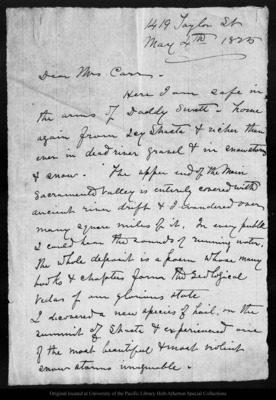 1419 Taylor St
May 4th 1875
Dear Mrs Carr.
Here I am safe in
the arms of Daddy Swett - home
again from icy Shasta & richer than
ever in dead river gravel & in snowstorms
& snow. The upper end of the Main
Sacramento Valley is entirely covered with
ancient river drift & I wandered over
many square miles of it. In every pebble
I could hear the sounds of running water.
The whole deposit is a poem whose many
books & chapters form the Geological
Vedas of our glorious state.
I discovered a new species of hail, on the
summit of Shasta & experienced one
of the most beautiful & most violent
snowstorms imaginable.
Original located at University of the Pacific Library Holt-Atherton Special Collections.